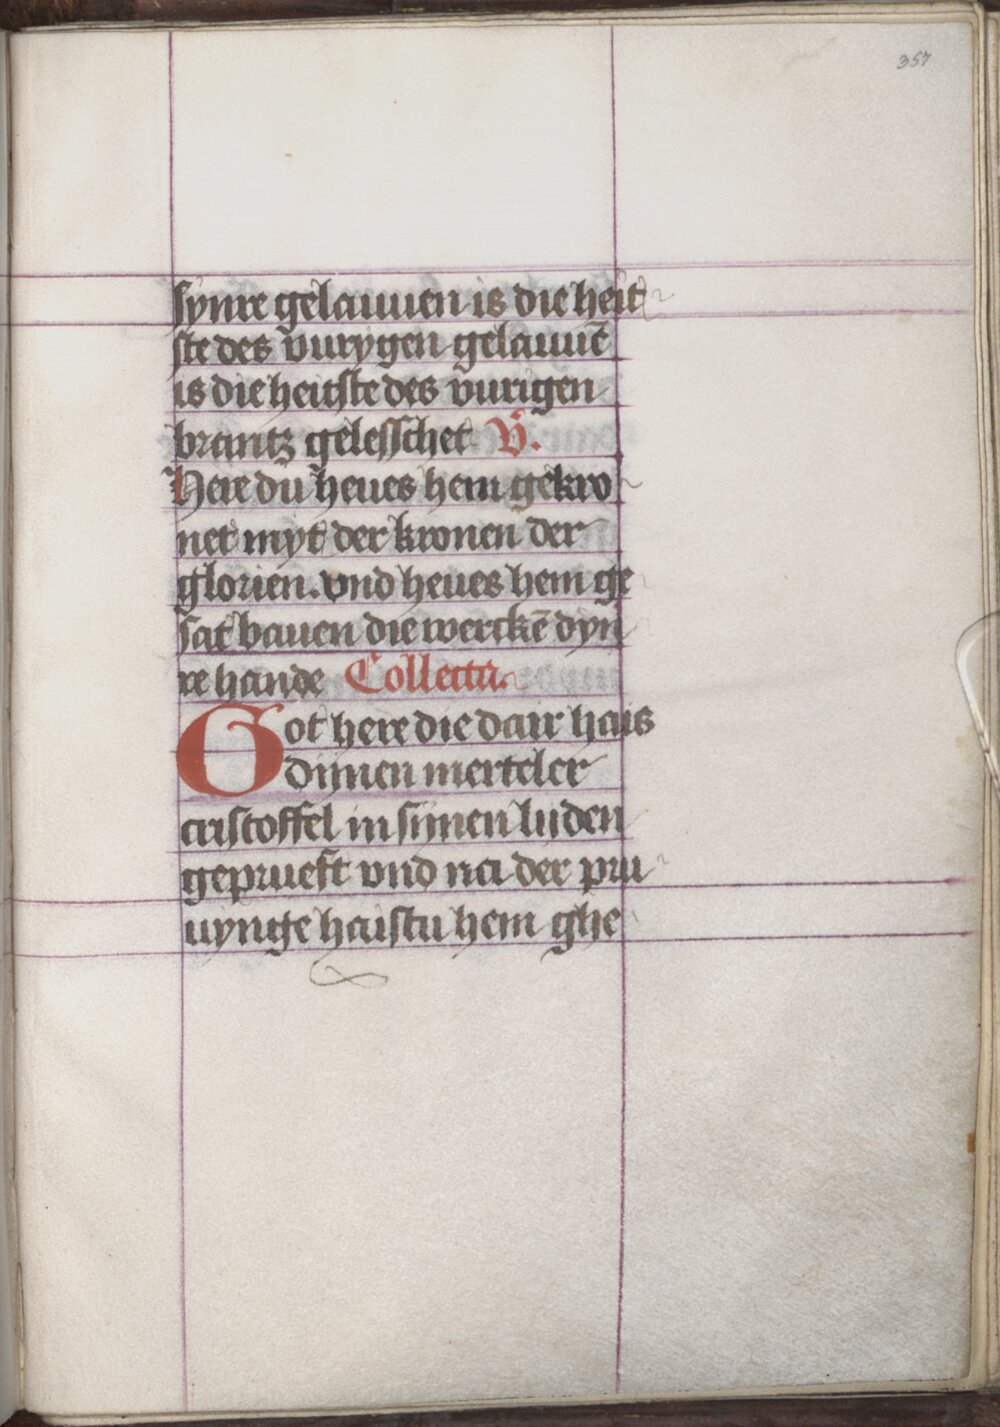 357
synre gelauuen is die heit
ste des vurygen gelauuē
is die heitste des vurigen
brantz gelesschet. V̄.
Here du heues hem gekro
net myt der kronen der
glorien. vnd heues hem ge
sat bauen die werckē dyn
re hande Collecta.
Got here die dair hais
dijnen merteler
cristoffel in sijnen lijden
geprueft vnd na der pru
uynge haistu hem ghe